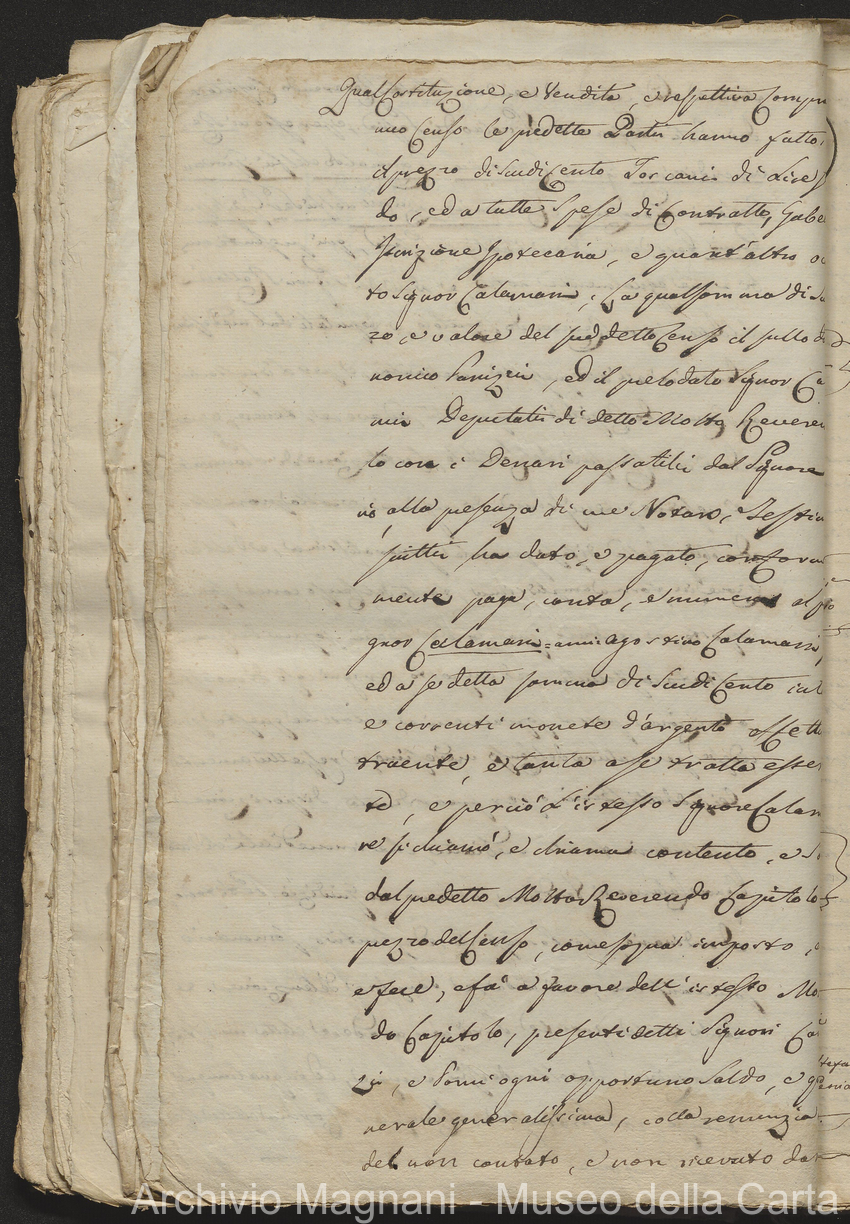 Qual Costituzione, e Vendita, e respettiva Compr
mo Censo le predette Parti hanno fatto,
il prezzo di Scudi Cento Toscani di Lire
do, ed a tutte Spese di Contratto, Gabe
Iscrizione Ipotecaria, e quant'altro oc
to Signor Calamari; La qual somma di Sc
zo, e valore del suddetto Censo il sullod
nonico Panizzi, ed il prelodato Signor Ca
Deputati di detto Molto Reveren
to con i Denari passatili dal Signore
alla presenza di me Notaro, e Testim
ha dato, e pagato, conform
mente paga, conta, e numera al
gnor Calamari = Agostino Calamari,
ed a se detta somma di Scudi Cento in
e correnti monete d'argento effett
traente, e tanta a se tratta esse
te, e perciò L'istesso Signore Calam
re si chiamò, e chiama contento, e S
dal predetto Molto Reverendo Capitolo
prezzo del Censo, come sopra imposto,
e fece, e fà a favore dell'istesso Mo
do Capitolo, presenti detti Signori Ca
zzi, e Pomi ogni opportuno Saldo, e q
nerale generalissima, colla renunzia
del non contato, e non ricevuto da
Archivio Magnani - Museo della Carta